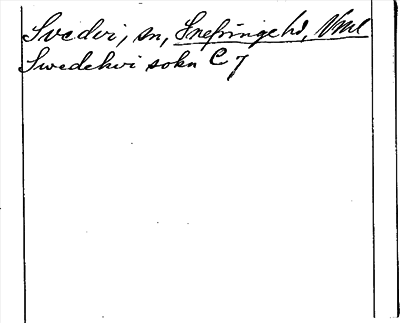 Svedvi, sn, Snefringe hd, Vml
Swedehvi sokn C 7